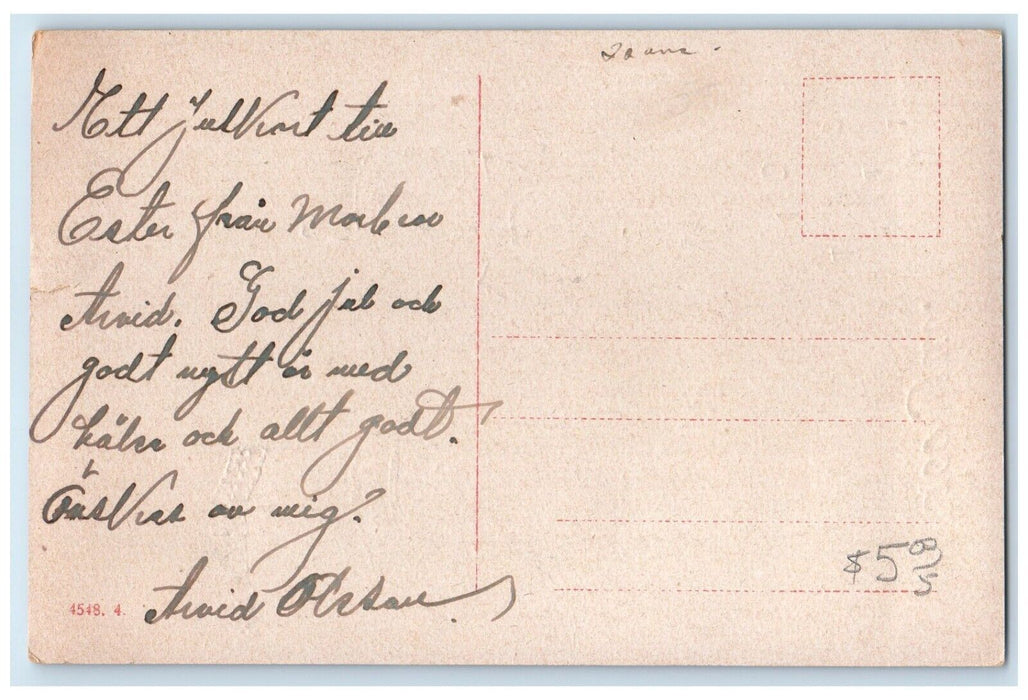 Ett julkort till
Ester från Morbror
Arvid. God jul och
godt nytt år med
hälsa och allt godt.
Önskas av mig.
Arvid Olsson
4548. 4.
$5.00
S